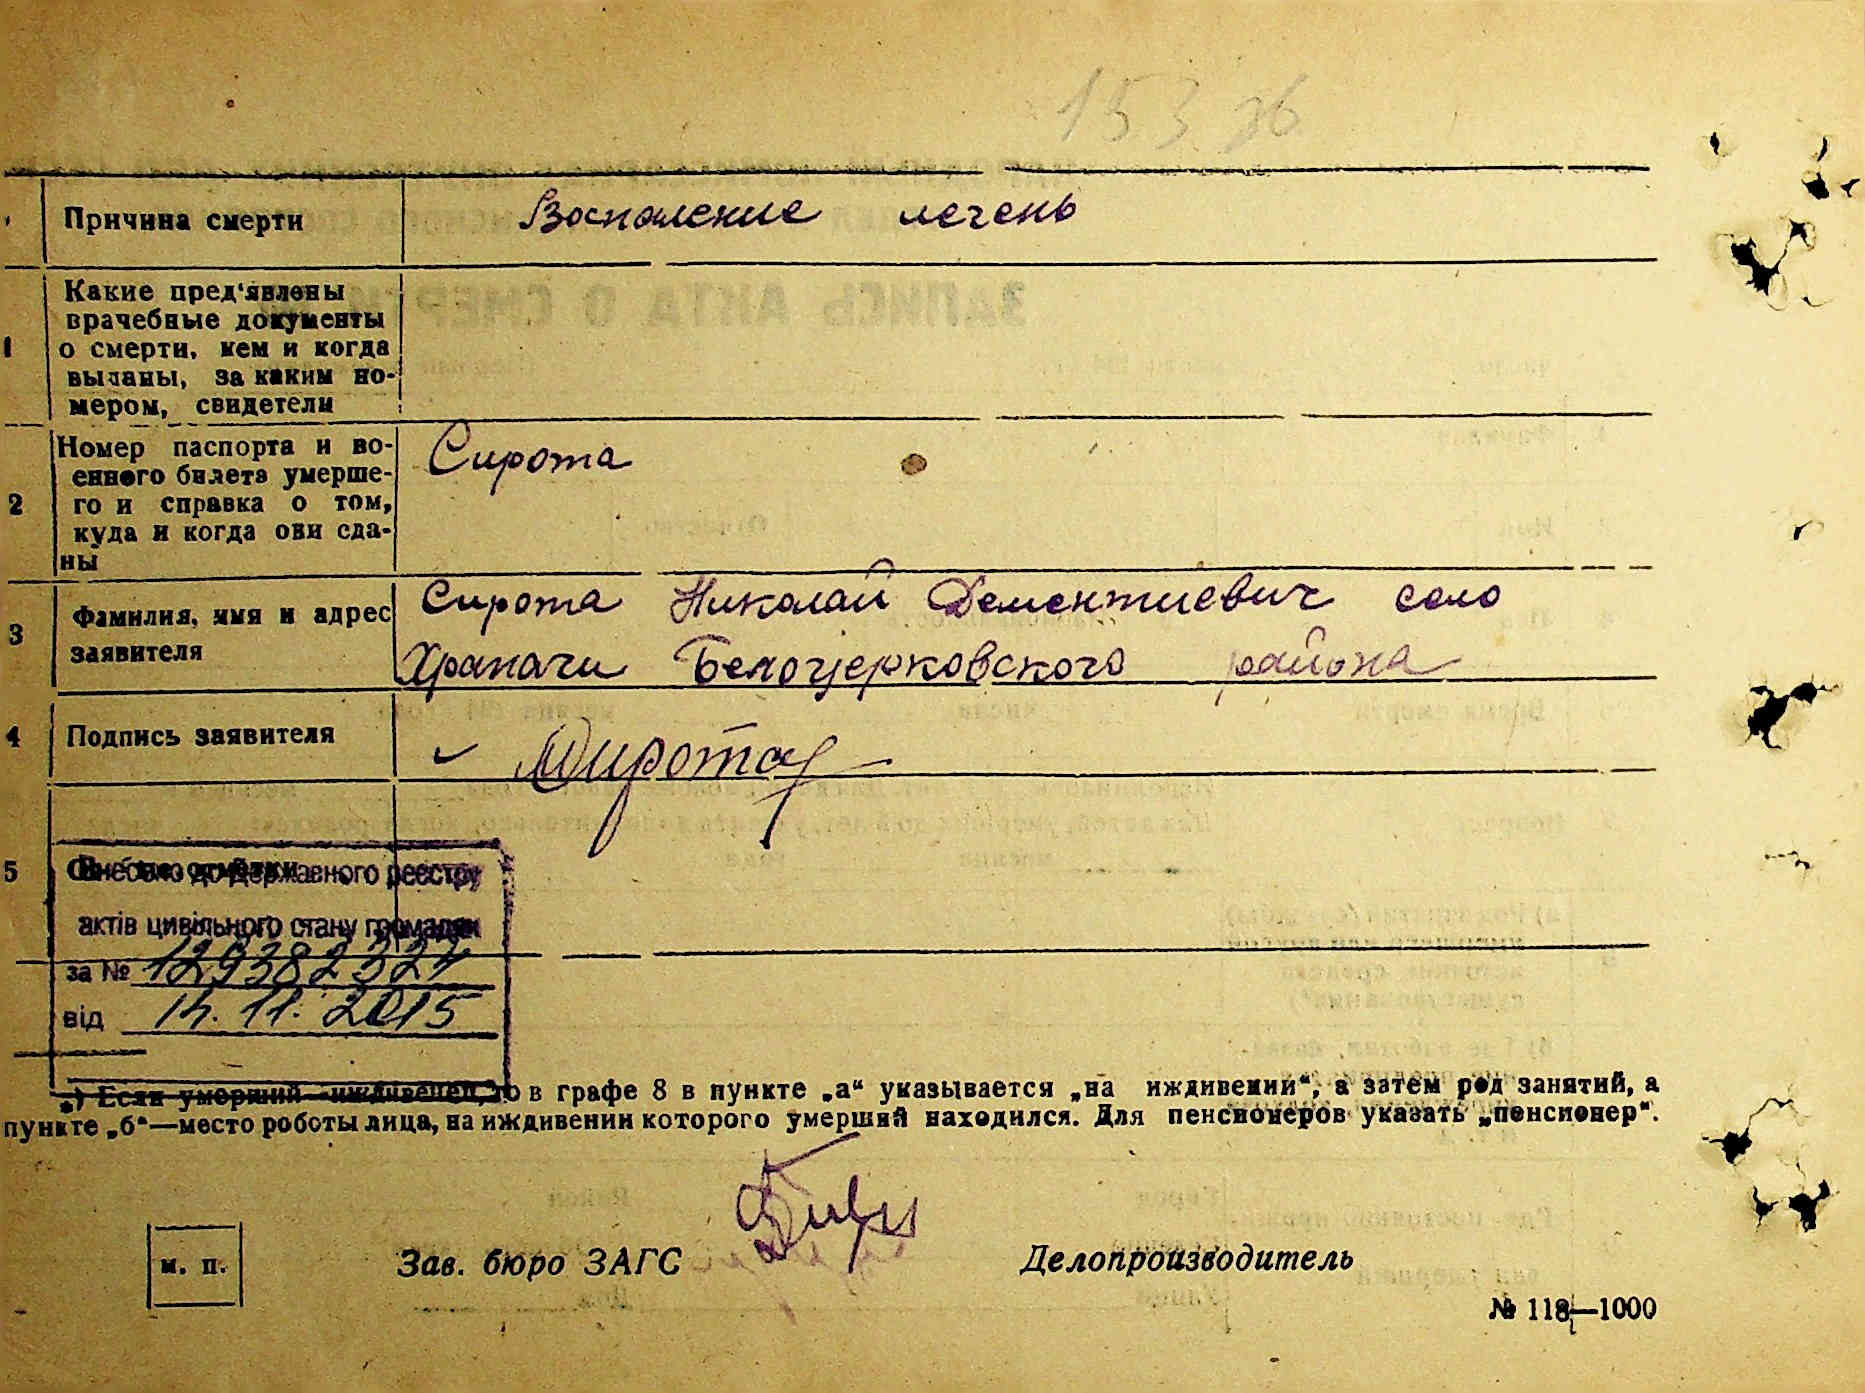 153 зв
Причина смерти Воспаление печень
1 Какие пред'явлены
врачебные документы
о смерти, кем и когда
выданы, за каким но-
мером, свидетели
2 Номер паспорта и во-
енного билета умерше-
го и справка о том,
куда и когда они сда-
ны
Сирота
3 Фамилия, имя и адрес
заявителя
Сирота Николай Дементиевич село
Храпачи Белоцерковского района
4 Подпись заявителя Сирота
5 Особые отметки
Внесено до Державного реєстру
актів цивільного стану громадян
за № 129382327
від 14.11.2015
*) Если умерший иждивенец, то в графе 8 в пункте „а“ указывается „на иждивении“, а затем род занятий, а
пункте „б“—место роботы лица, на иждивении которого умерший находился. Для пенсионеров указать „пенсионер“.
м. п. Зав. бюро ЗАГС Делопроизводитель
№ 118—1000